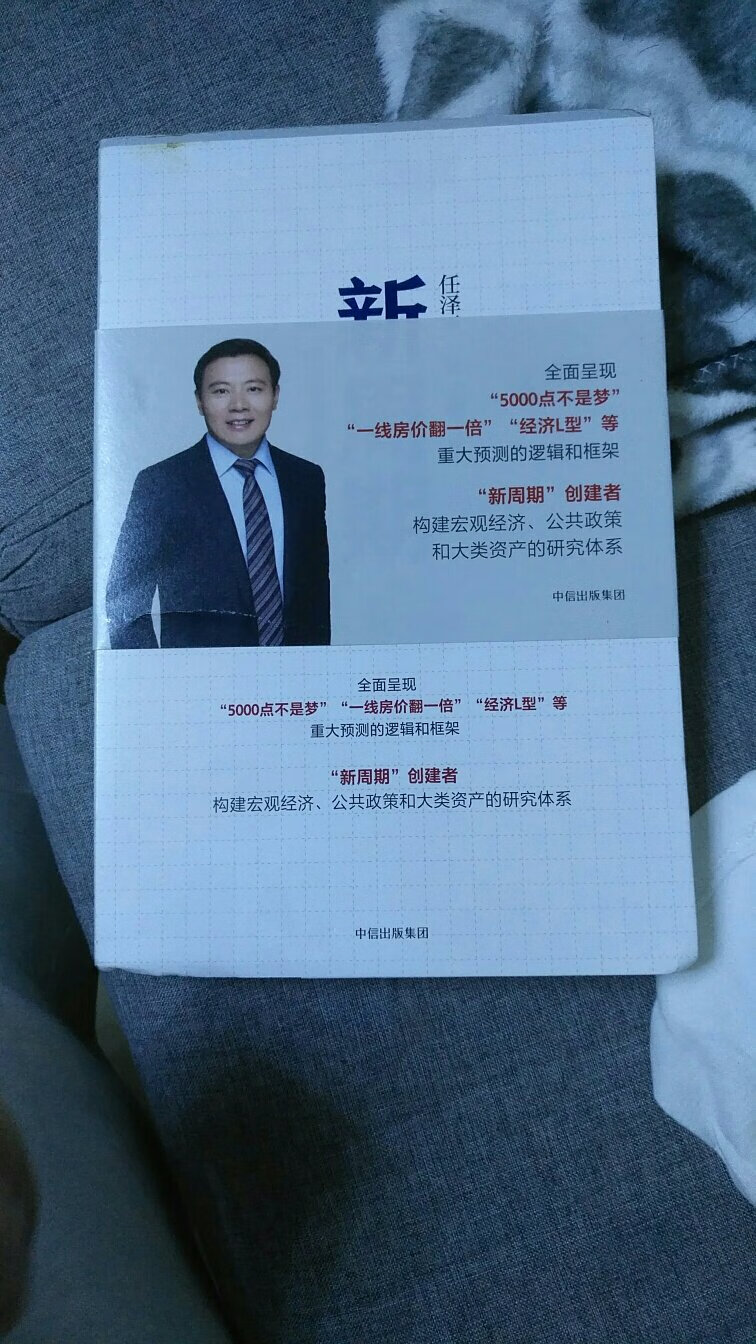 新
任泽
全面呈现
“5000点不是梦”
“一线房价翻一倍” “经济L型”等
重大预测的逻辑和框架
“新周期”创建者
构建宏观经济、公共政策
和大类资产的研究体系
中信出版集团
全面呈现
“5000点不是梦” “一线房价翻一倍” “经济L型”等
重大预测的逻辑和框架
“新周期”创建者
构建宏观经济、公共政策和大类资产的研究体系
中信出版集团